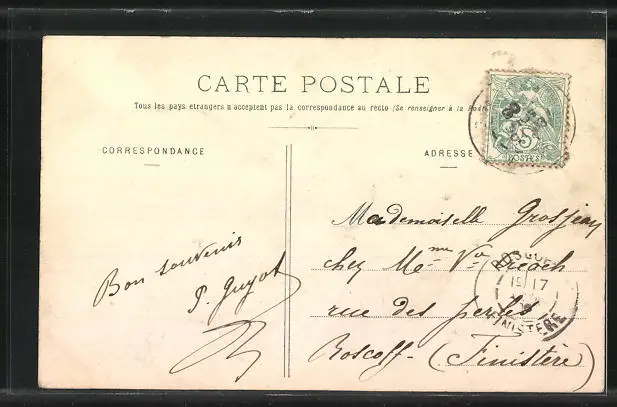 CARTE POSTALE
Tous les pays étrangers n'acceptent pas la correspondance au recto (Se renseigner à la Poste
CORRESPONDANCE
ADRESSE
5
POSTES
Bon souvenir
P. Guyot
Mademoiselle Grosjean
chez Mme Ve
rue des perles
Roscoff - (Finistère)
ROSCOFF
17
FINISTERE